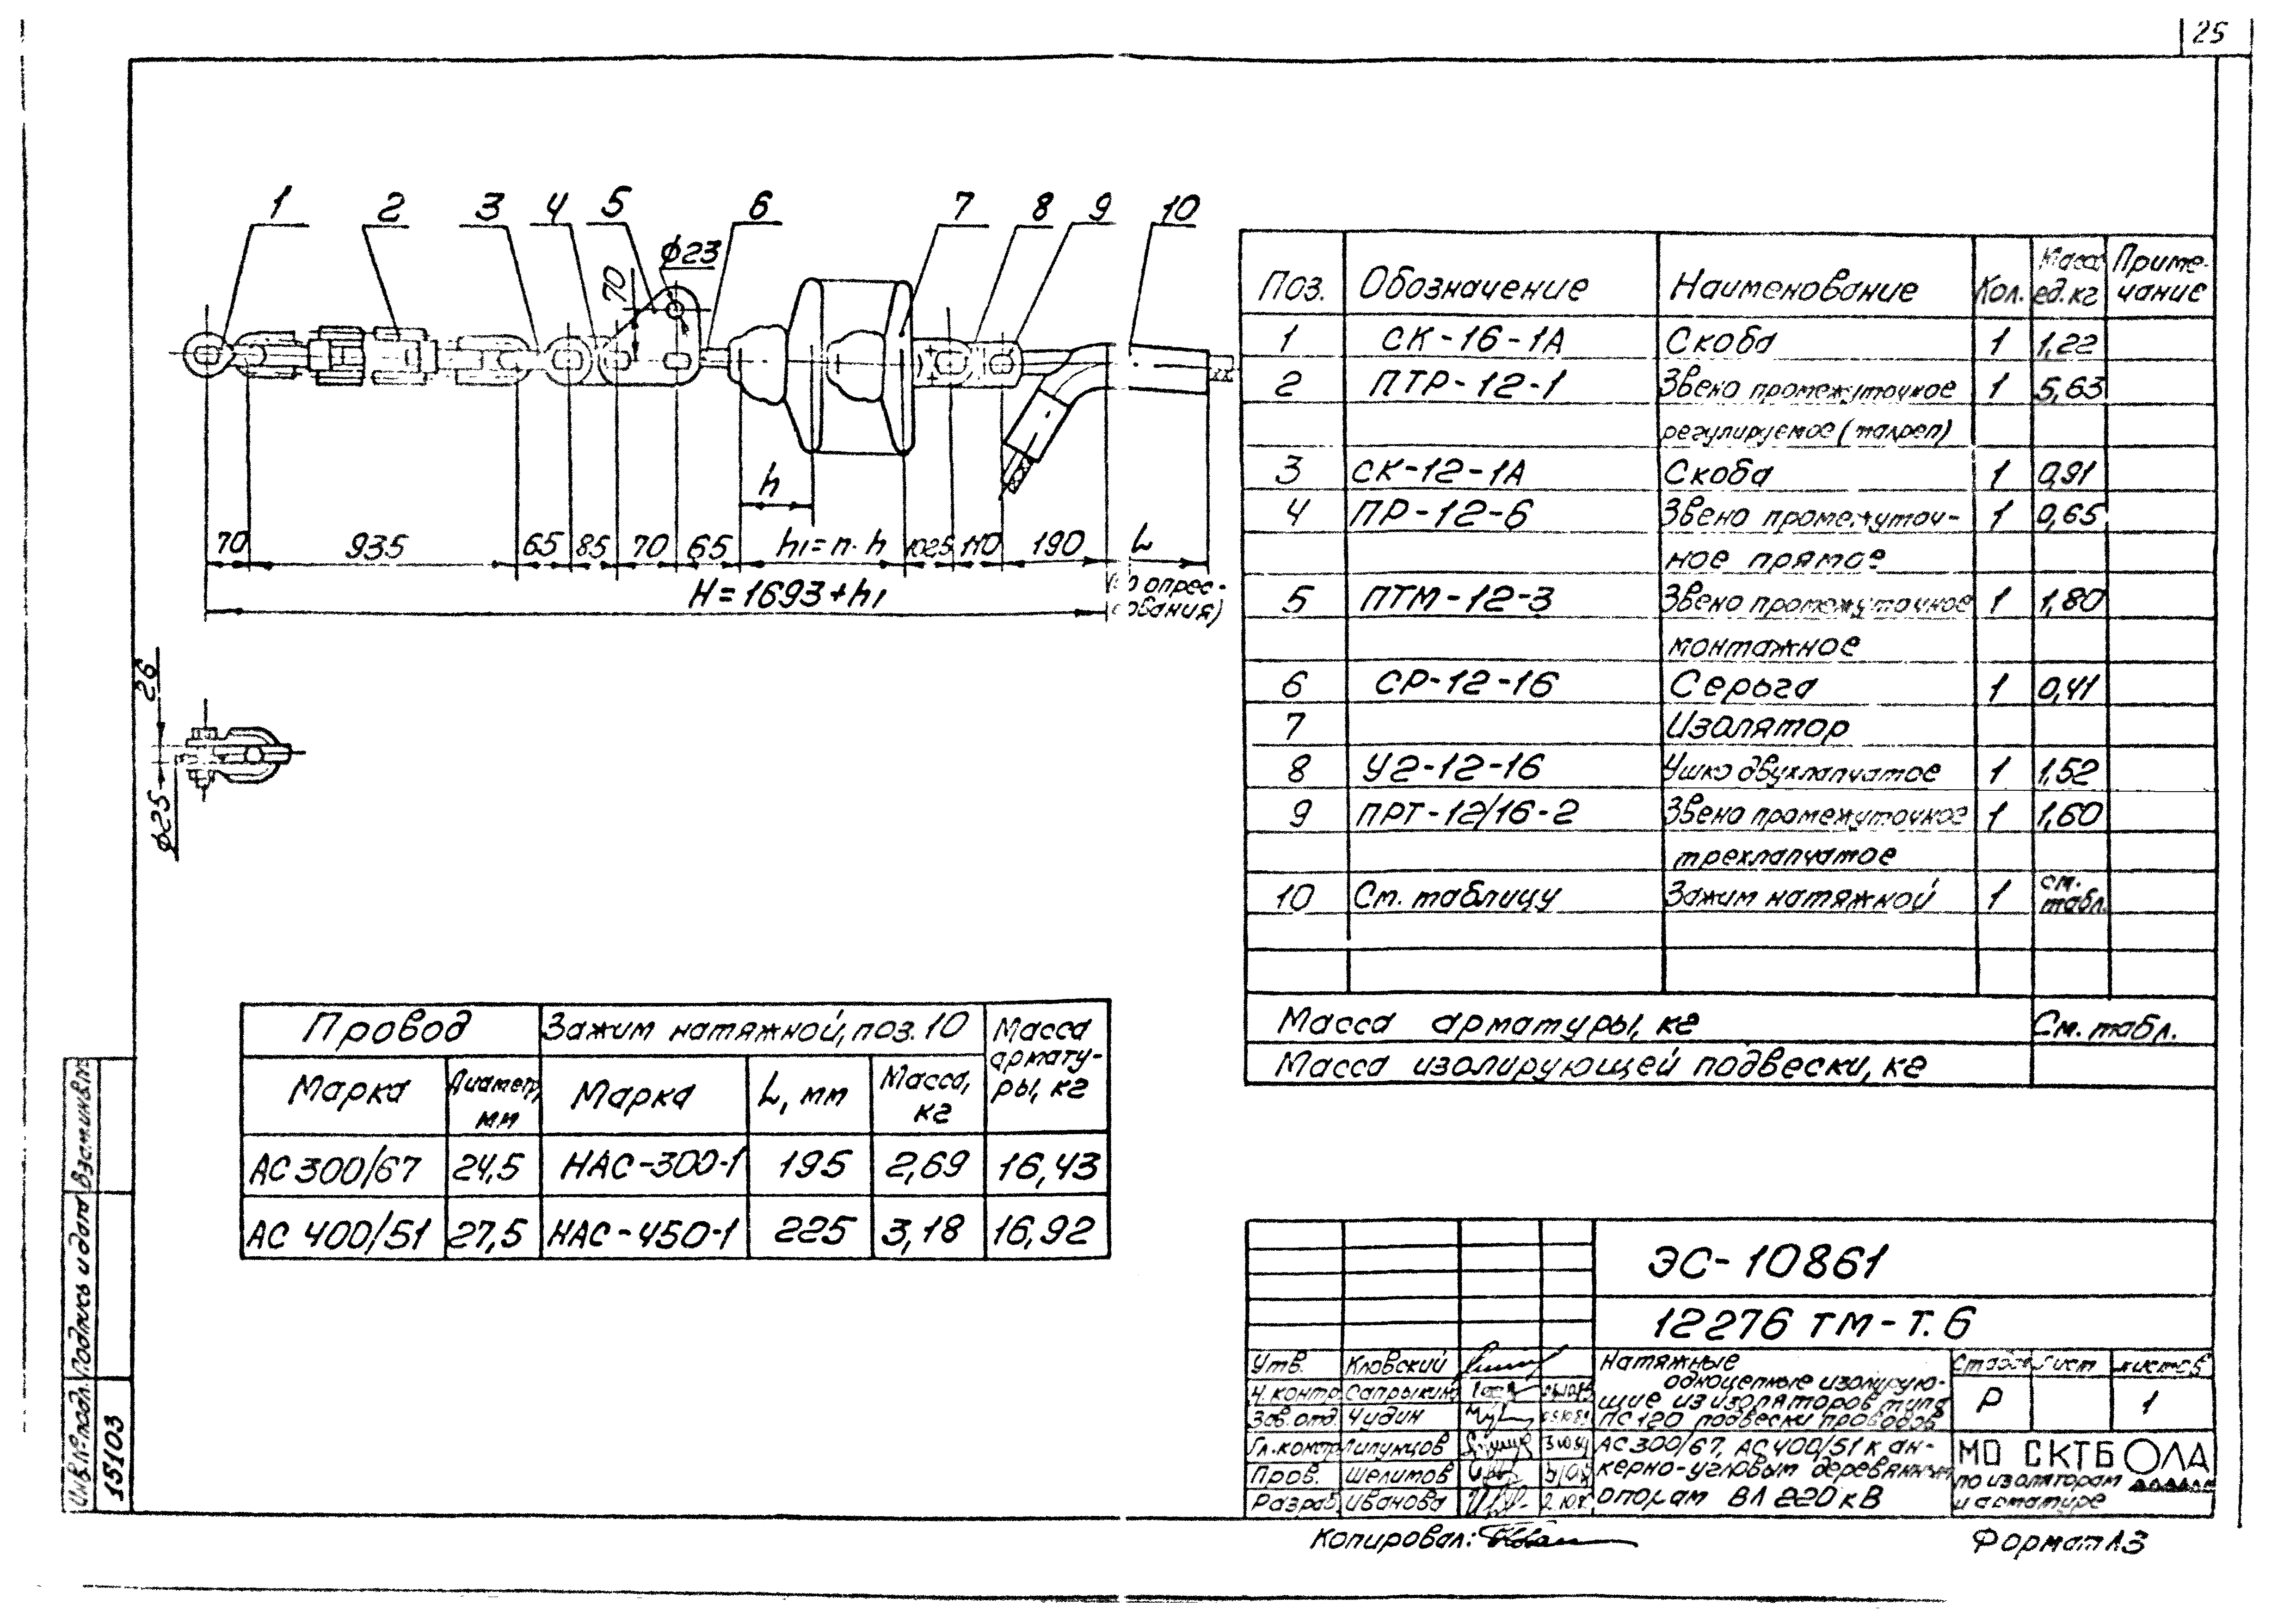 25
1 2 3 4 5 6 7 8 9 10
ϕ23
70
h
70 935 65 85 70 65 h1=п·h 102,5 110 190 L
H=1693+h1
26
ϕ25
Поз. Обозначение Наименование Кол. Масса ед.кг Приме-чание
1 СК-16-1А Скоба 1 1,22
2 ПТР-12-1 Звено промежуточное 1 5,63
регулируемое (талреп)
3 СК-12-1А Скоба 1 0,91
4 ПР-12-6 Звено промежуточ- 1 0,65
ное прямое
5 ПТМ-12-3 Звено промежуточное 1 1,80
монтажное
6 СР-12-16 Серьга 1 0,41
7 Изолятор
8 У2-12-16 Ушко двухлапчатое 1 1,52
9 ПРТ-12/16-2 Звено промежуточное 1 1,60
трехлапчатое
10 См. таблицу Зажим натяжной 1 см. табл.
Масса арматуры, кг См. табл.
Масса изолирующей подвески, кг
Провод Зажим натяжной, поз. 10 Масса армату-ры, кг
Марка Диаметр, мм Марка L, мм Масса, кг
АС 300/67 24,5 НАС-300-1 195 2,69 16,43
АС 400/51 27,5 НАС-450-1 225 3,18 16,92
Взам.инв.№
Подпись и дата
Инв.№ подл.
15103
ЭС-10861
12276 ТМ-Т.6
Утв. Кловский
Н.контр. Сапрыкин
Зав.отд. Чудин
Гл.констр. Липунцов
Пров. Шелитов
Разраб. Иванова
Натяжные
одноцепные изолирую-
щие из изоляторов типа
ПС120 подвески проводов
АС300/67, АС400/51 к ан-
керно-угловым деревянным
опорам ВЛ 220 кВ
Стадия Лист Листов
Р 1
МО СКТБ
по изоляторам
и арматуре
Копировал:
Формат А3